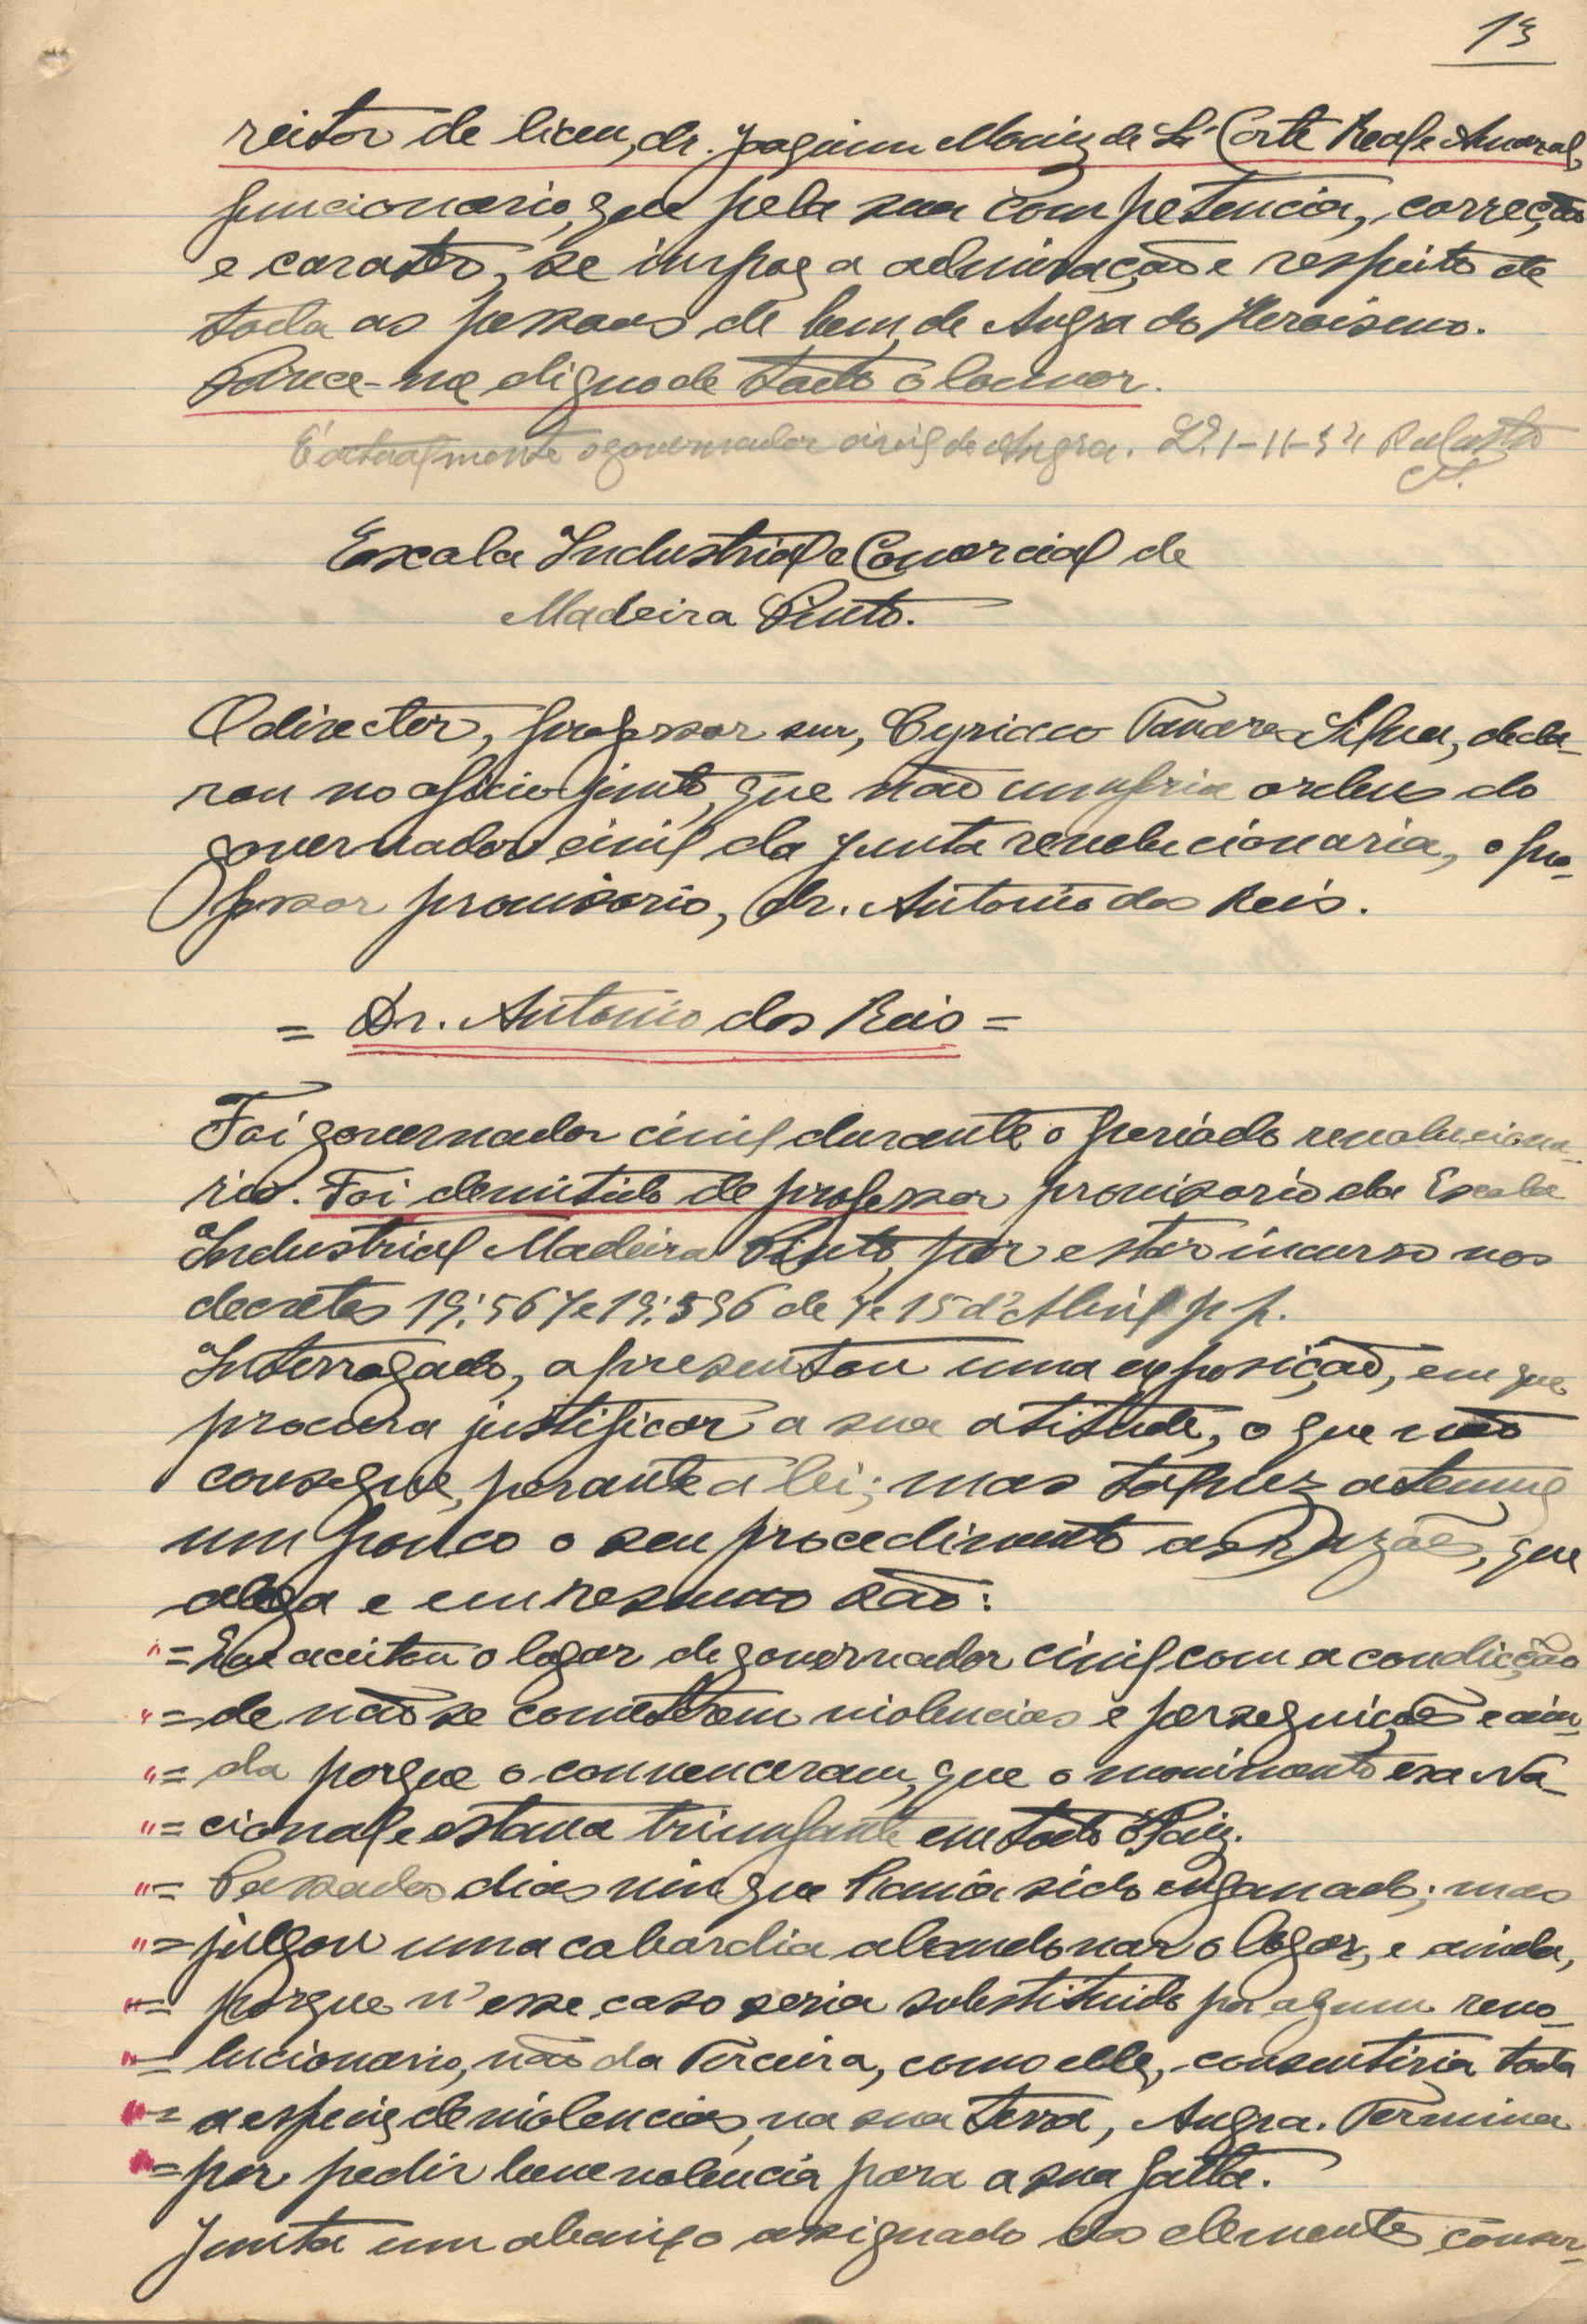 13
reitor de liceu, dr. Joaquim Moniz de Sá Corte Real e Amaral,
funcionario, que pela sua competencia, correcção
e carater, se impoz a admiração e respeito de
toda as pessoas de bem, de Angra do Heroismo.
Parece-me digno de todo o louvor.
É actualmente o governador civil de Angra. 1-11-34
Escola Industrial e Comercial de
Madeira Pinto.
O director, professor snr, Cyriaco Tavares Silva, decla-
rou no oficio junto, que não cumpria ordens do
governador civil da Junta revolucionaria, o pro-
fessor provisorio, dr. Antonio dos Reis.
= Dr. Antonio dos Reis =
Foi governador civil durante o periodo revoluciona-
rio. Foi demitido de professor provisorio da Escola
Industrial Madeira Pinto, por estar incurso nos
decretos 19:567 e 19:596 de 7 e 15 d'Abril p p.
Interrogado, apresentou uma exposição, em que
procura justificar a sua atitude, o que não
consegue, perante a lei; mas talvez atenue
um pouco o seu procedimento as razões, que
alega e em resumo são:
"= Que aceitou o logar de governador civil com a condicção
"= de não se cometerem violencias e perseguições e ain-
"= da porque o convenceram, que o movimento era Na-
"= cional e estava triunfante em todo o Paiz.
"= Passados dias viu que havia sido enganado; mas
"= julgou uma cobardia abandonar o logar, e ainda,
"= porque n'esse caso seria substituido por algum revo-
"= lucionario, não da Terceira, como elle, consentiria toda
"= a especie de violencias, na sua terra, Angra. Termina
"= por pedir benevolencia para a sua falta.
Junta um abaixo assignado dos elementos conser-